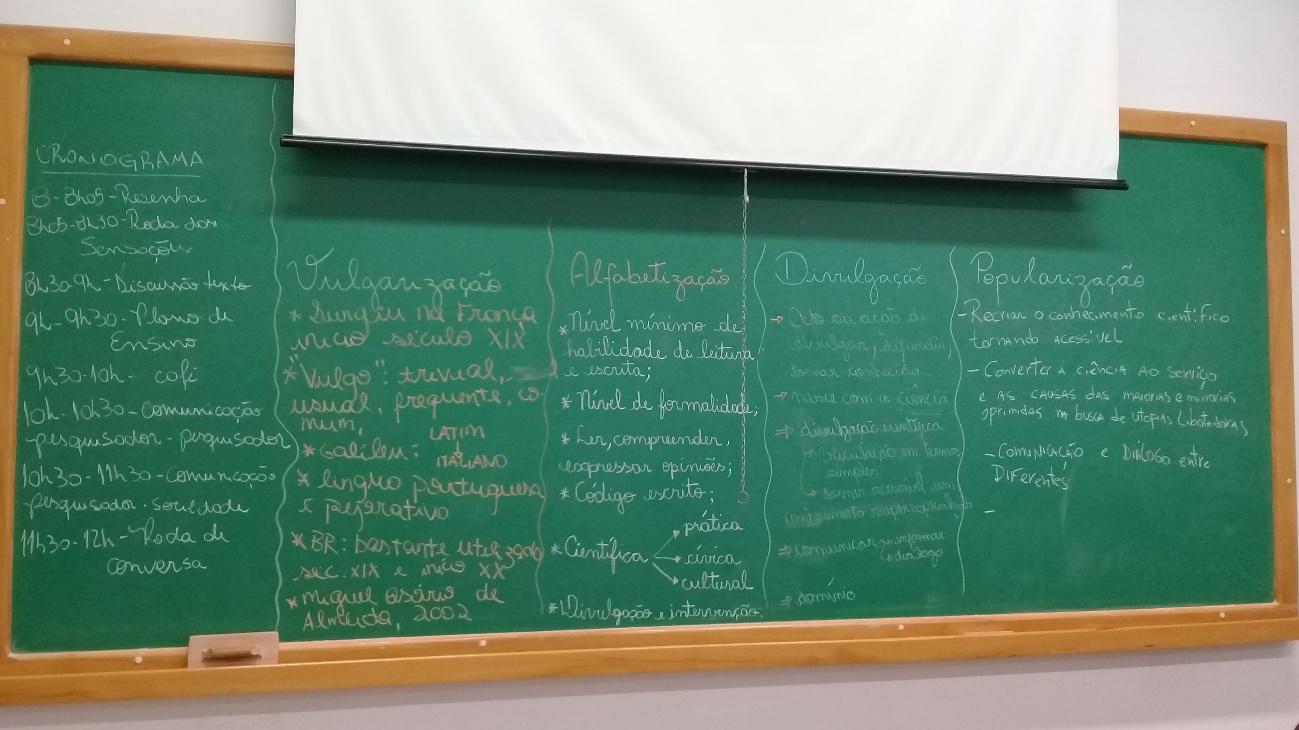 CRONOGRAMA
8-8h05-Resenha
8h05-8h30-Roda das
Sensações
8h30-9h-Discussão texto
9h-9h30-Plano de
Ensino
9h30-10h-café
10h-10h30-Comunicação
pesquisador-pesquisador
10h30-11h30-Comunicação
pesquisador-sociedade
11h30-12h-Roda de
conversa
Vulgarização
* Surgiu na França
início século XIX
* "Vulgo": trivual,
usual, frequente, co-
mum,
* Galileu: LATIM
ITALIANO
* língua portuguesa
é pejorativo
* BR: bastante utilizado
séc. XIX e início XX
* Miguel Osório de
Almeida, 2002
Alfabetização
* Nível mínimo de
habilidade de leitura
e escrita;
* Nível de formalidade;
* Ler, compreender,
expressar opiniões;
* Código escrito;
* Científica → prática
→ cívica
→ cultural
* Divulgação e intervenção
Divulgação
→ Ato ou ação de
divulgar, difundir,
tornar conhecido
→ nasce com a ciência
⇒ divulgação científica
→ em termos
simples
→ tornar acessível um
conhecimento
⇒ comunicar → informar
→ diálogo
⇒ domínio
Popularização
- Recriar o conhecimento científico
tornando acessível
- Converter a ciência ao serviço
e as causas das maiorias e minorias
oprimidas na busca de utopias libertadoras
- Comunicação e Diálogo entre
Diferentes
-